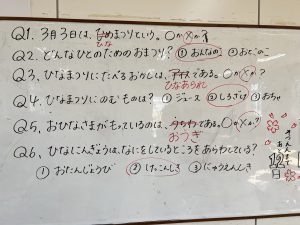 Q1. 3月3日は、ひめまつりという。○か×か？
ひな
Q2. どんなひとのためのおまつり？ ①おんなのこ ②おとこのこ
Q3. ひなまつりにたべるおかしは、アイスである。○か×か？
ひなあられ
Q4. ひなまつりにのむものは？ ①ジュース ②しろざけ ③おちゃ
Q5. おひなさまがもっているのは、うちわである。○か×か？
おうぎ
Q6. ひなにんぎょうは、なにをしているところをあらわしている？
①おたんじょうび ②けっこんしき ③にゅうえんしき
12
日